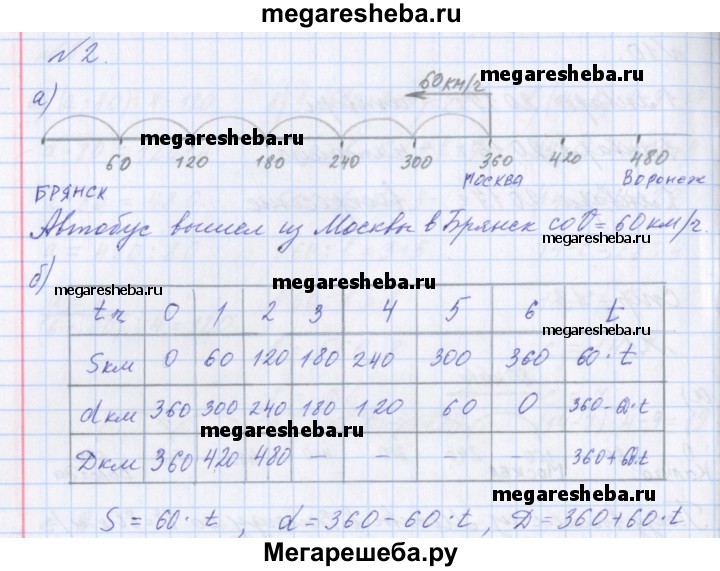 megaresheba.ru
№2.
60 км/г
megaresheba.ru
а)
megaresheba.ru
60 120 180 240 300 360 420 480
БРЯНСК МОСКВА Воронеж
Автобус вышел из Москвы в Брянск со υ = 60 км/г.
megaresheba.ru
б)
megaresheba.ru
t ч 0 1 2 3 4 5 6 t
megaresheba.ru
S км 0 60 120 180 240 300 360 60·t
d км 360 300 240 180 120 60 0 360-60·t
megaresheba.ru
D км 360 420 480 - - - - 360+60·t
megaresheba.ru
S = 60·t, d = 360-60·t, D = 360+60·t
Мегарешеба.ру